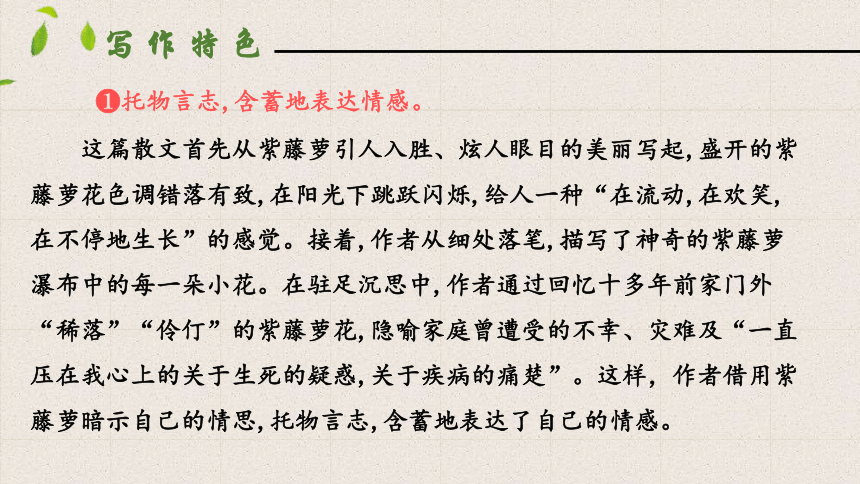 写作特色
❶托物言志,含蓄地表达情感。
这篇散文首先从紫藤萝引人入胜、炫人眼目的美丽写起,盛开的紫
藤萝花色调错落有致,在阳光下跳跃闪烁,给人一种“在流动,在欢笑,
在不停地生长”的感觉。接着,作者从细处落笔,描写了神奇的紫藤萝
瀑布中的每一朵小花。在驻足沉思中,作者通过回忆十多年前家门外
“稀落”“伶仃”的紫藤萝花,隐喻家庭曾遭受的不幸、灾难及“一直
压在我心上的关于生死的疑惑,关于疾病的痛楚”。这样，作者借用紫
藤萝暗示自己的情思,托物言志,含蓄地表达了自己的情感。